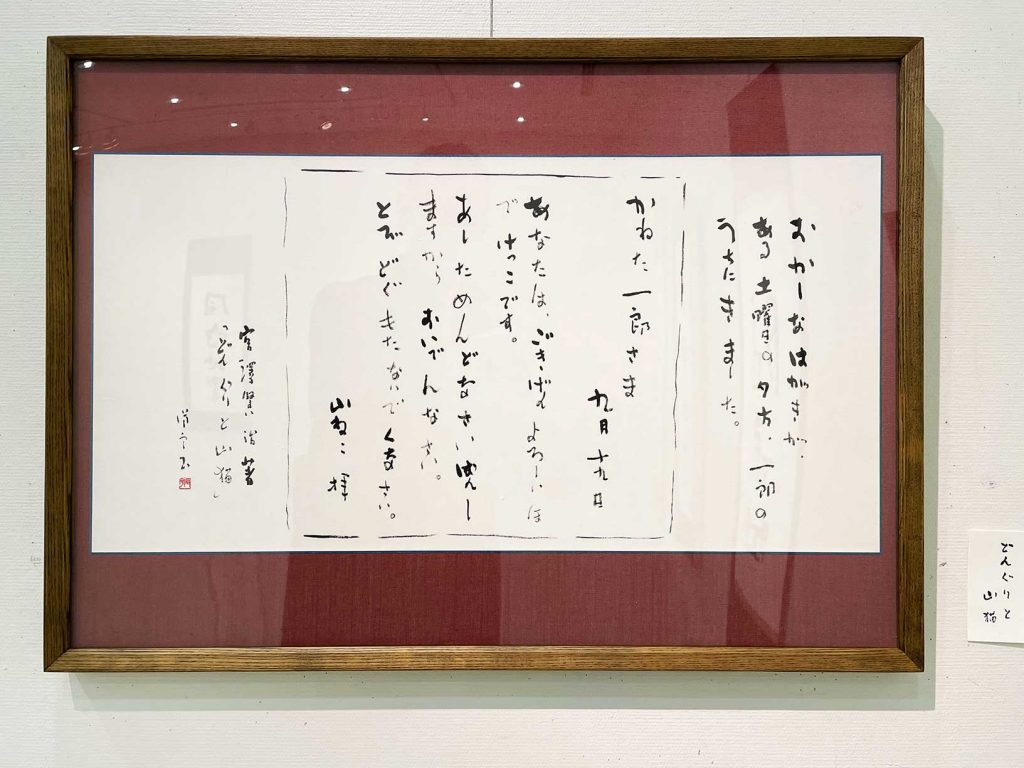 おかしなはがきが、
ある土曜日の夕方、一郎の
うちにきました。
かねた一郎さま
九月十九日
あなたは、ごきげんよろしいほ
で けっこです。
あしためんどなさいばんし
ますから おいでんなさい。
とびどぐもたないでくなさい。
山ねこ 拝
宮澤賢治著
「どんぐりと山猫」
どんぐりと
山猫